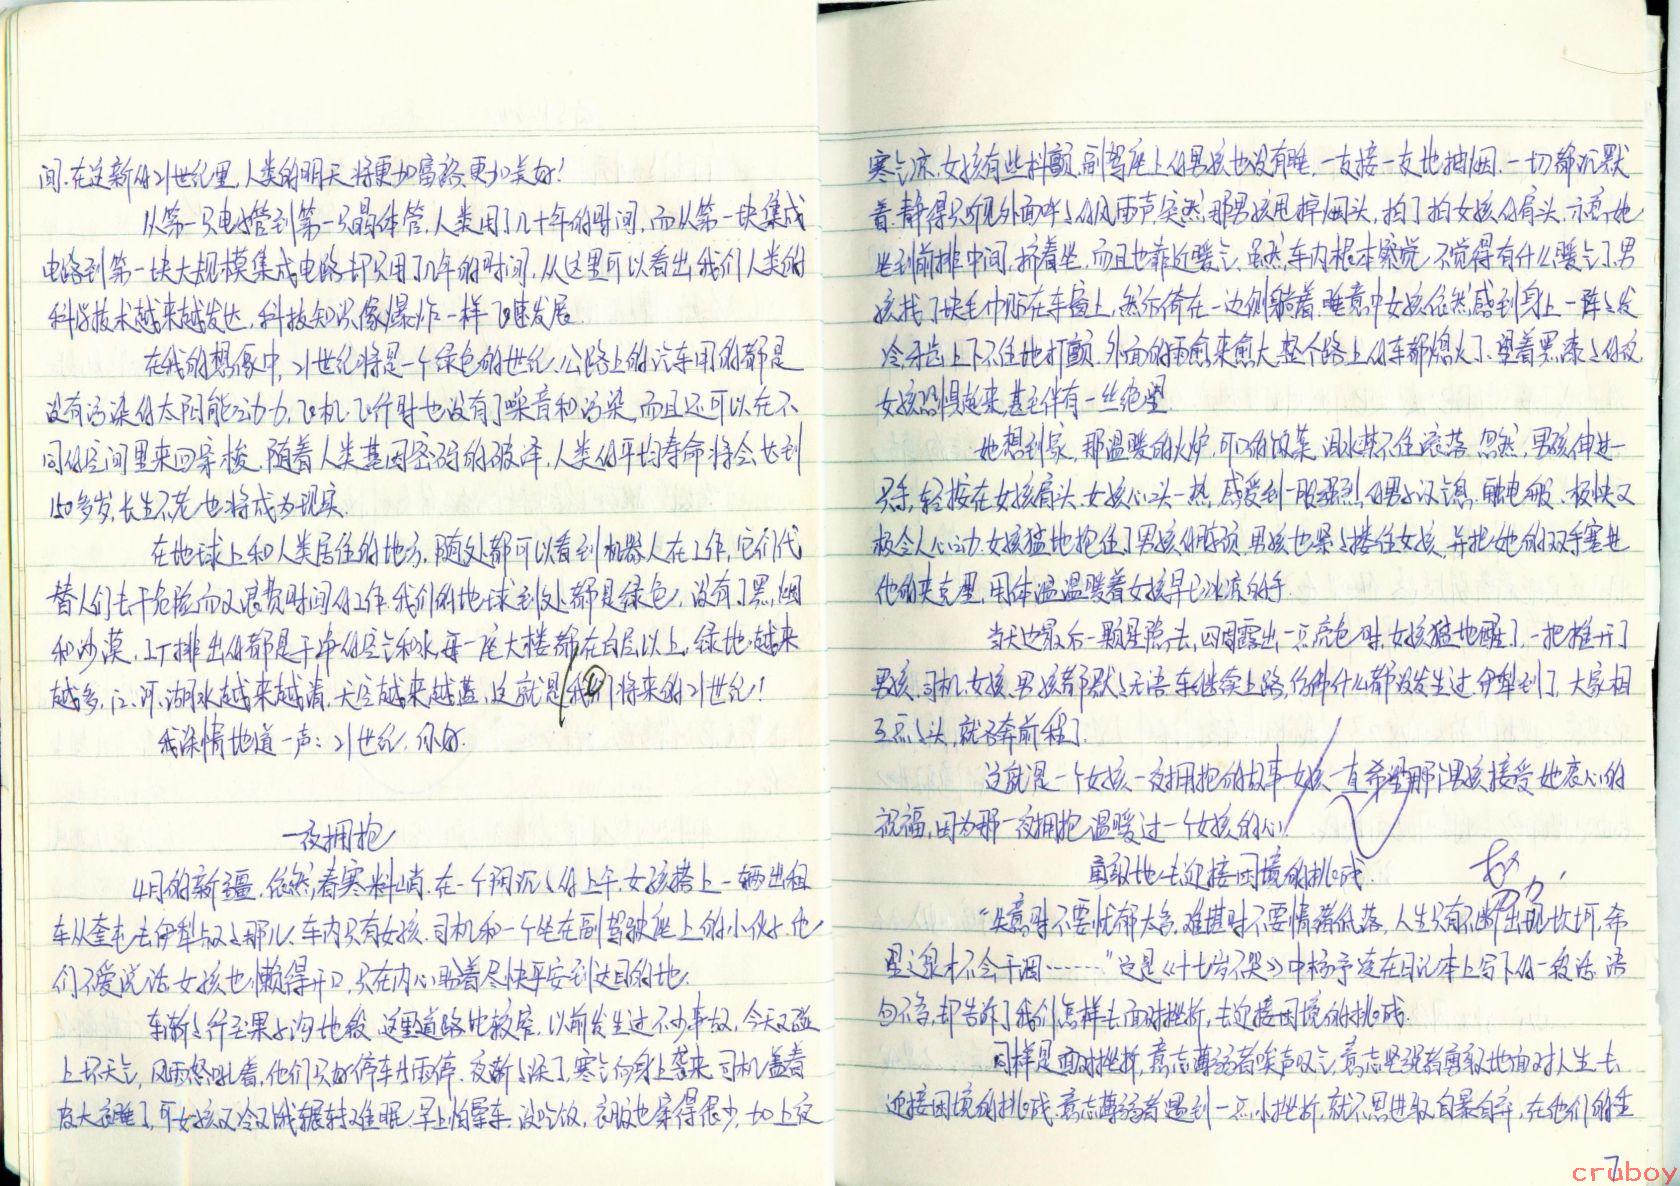 间.在这新的21世纪里,人类的明天将更加富裕,更加美好!
从第一只电子管到第一只晶体管,人类用了几十年的时间,而从第一块集成
电路到第一块大规模集成电路却只用了几年的时间,从这里可以看出我们人类的
科学技术越来越发达,科技知识像爆炸一样飞速发展.
在我的想像中,21世纪将是一个绿色的世纪.公路上的汽车用的都是
没有污染的太阳能动力,飞机飞行时也没有了噪音和污染,而且还可以在不
同的空间里来回穿梭.随着人类基因密码的破译,人类的平均寿命将会长到
150多岁,长生不老也将成为现实.
在地球上和人类居住的地方,随处都可以看到机器人在工作,它们代
替人们去干危险而又浪费时间的工作.我们的地球到处都是绿色,没有了黑烟
和沙漠,工厂排出的都是干净的空气和水,每一座大楼都在百层以上,绿地越来
越多,江.河.湖水越来越清,天空越来越蓝,这就是我们将来的21世纪!
我深情地道一声:21世纪,你好.
一夜拥抱
4月的新疆,依然春寒料峭.在一个阴沉沉的上午,女孩搭上一辆出租
车从奎屯去伊犁叔叔那儿.车内只有女孩.司机和一个坐在副驾驶座上的小伙子.他
们不爱说话.女孩也懒得开口,只在内心盼着尽快平安到达目的地.
车渐渐行至果子沟地段.这里道路比较窄,以前发生过不少事故,今天又碰
上坏天气,风雨怒吼着,他们只好停车等雨停.夜渐渐深了,寒气向身上袭来.司机盖着
皮大衣睡了,可女孩又冷又饿,辗转难眠.早上怕晕车.没吃饭,衣服也穿得很少,加上夜
寒气凉,女孩有些抖颤.副驾座上的男孩也没有睡,一支接一支地抽烟.一切都沉默
着.静得只听见外面呼呼的风雨声.突然,那男孩甩掉烟头,拍了拍女孩的肩头,示意她
坐到前排中间,挤着坐,而且也靠近暖气.虽然,车内根本察觉不觉得有什么暖气了.男
孩找了块毛巾贴在车窗上,然后倚在一边侧躺着.睡意中女孩依然感到身上一阵阵发
冷,牙齿上下不住地打颤.外面的雨愈来愈大,整个路上的车都熄火了.望着黑漆漆的夜
女孩恐惧起来,甚至伴有一丝绝望.
她想到家,那温暖的火炉,可口的饭菜,泪水禁不住滚落.忽然,男孩伸过一
只手,轻按在女孩肩头.女孩心头一热,感受到一股强烈的男子汉气息.触电般.极快又
极令人心动.女孩猛地抱住了男孩的脖颈.男孩也紧紧搂住女孩,并把她的双手塞进
他的夹克里,用体温温暖着女孩早已冰凉的手.
当天边最后一颗星隐去,四周露出一点亮色时,女孩猛地醒了,一把推开了
男孩.司机.女孩.男孩都默默无语.车继续上路,仿佛什么都没发生过.伊犁到了,大家相
互点点头,就各奔前程了.
这就是一个女孩一夜拥抱的故事.女孩一直希望那个男孩接受她衷心的
祝福,因为那一夜拥抱温暖过一个女孩的心!
勇敢地去迎接困境的挑战
"失意时不要忧郁太多,难堪时不要情绪低落,人生只有不断出现坎坷,希
望之泉才不会干涸……"这是《十七岁不哭》中杨宇凌在日记本上写下的一段话.语
句不多,却告诉了我们怎样去面对挫折,去迎接困境的挑战.
同样是面对挫折,意志薄弱者唉声叹气,意志坚强者勇敢地面对人生,去
迎接困境的挑战.意志薄弱者遇到一点小挫折,就不思进取,自暴自弃,在他们的生
7
cruboy